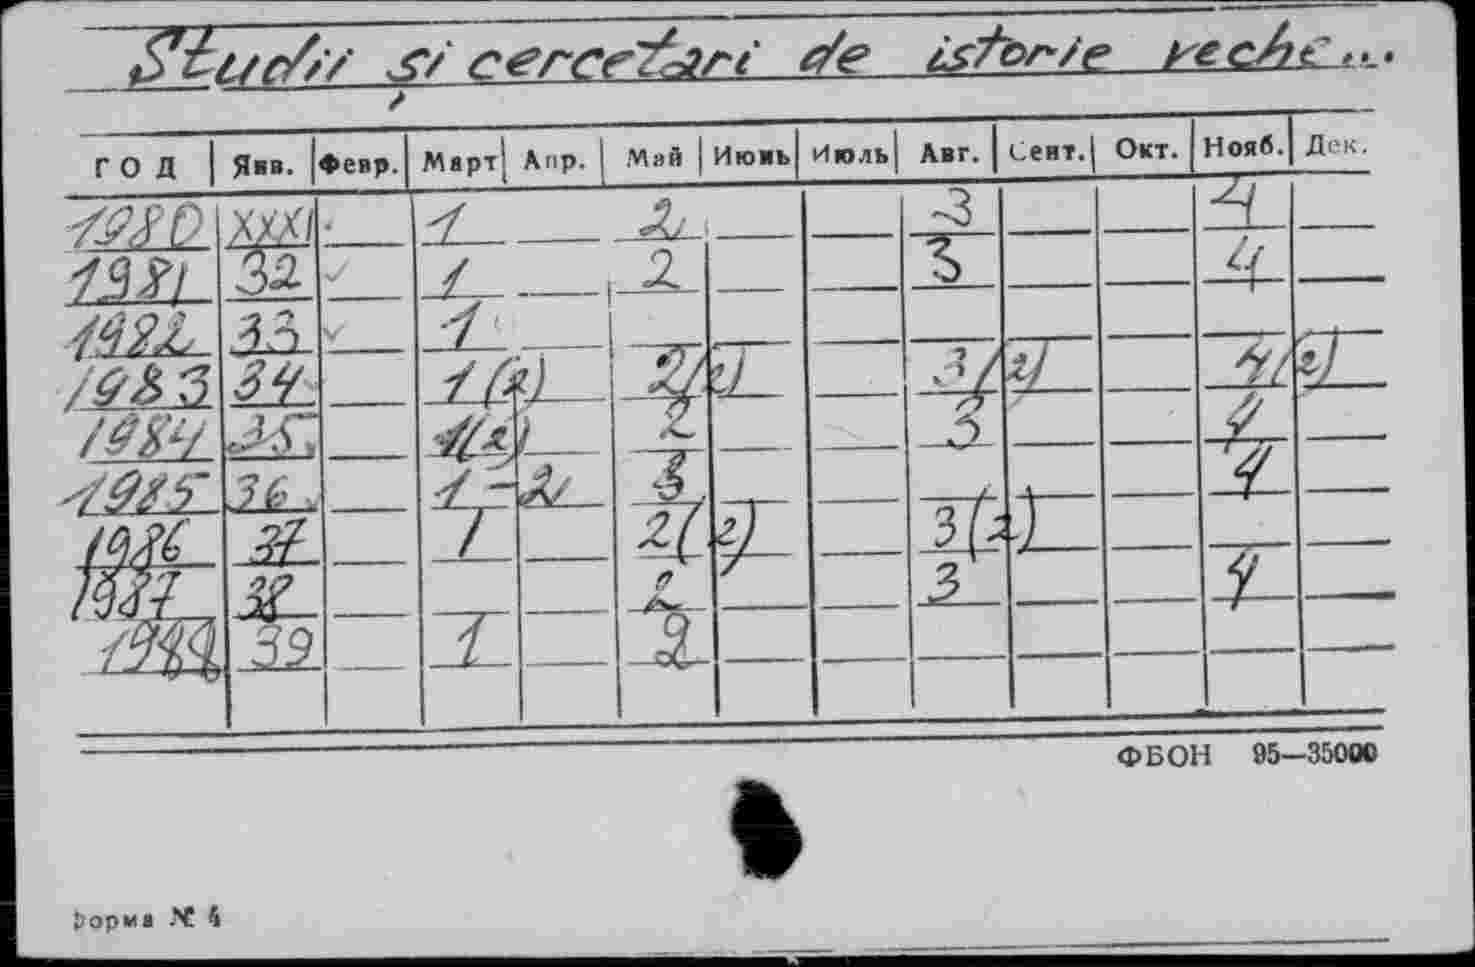 Studii și cercetari de istorie veche...
ГОД Янв. Февр. Март Апр. Май Июнь Июль Авг. Сент. Окт. Нояб. Дек.
1980 XXXI 1 2 3 4
1981 32 1 2 3 4
1982 33 1
1983 34 1(2) 2(2) 3(2) 4(2)
1984 35 1(2) 2 3 4
1985 36 1-2 3 4
1986 37 1 2(2) 3(2)
1987 38 2 3 4
1988 39 1 2
ФБОН 95—35000
Форма № 4